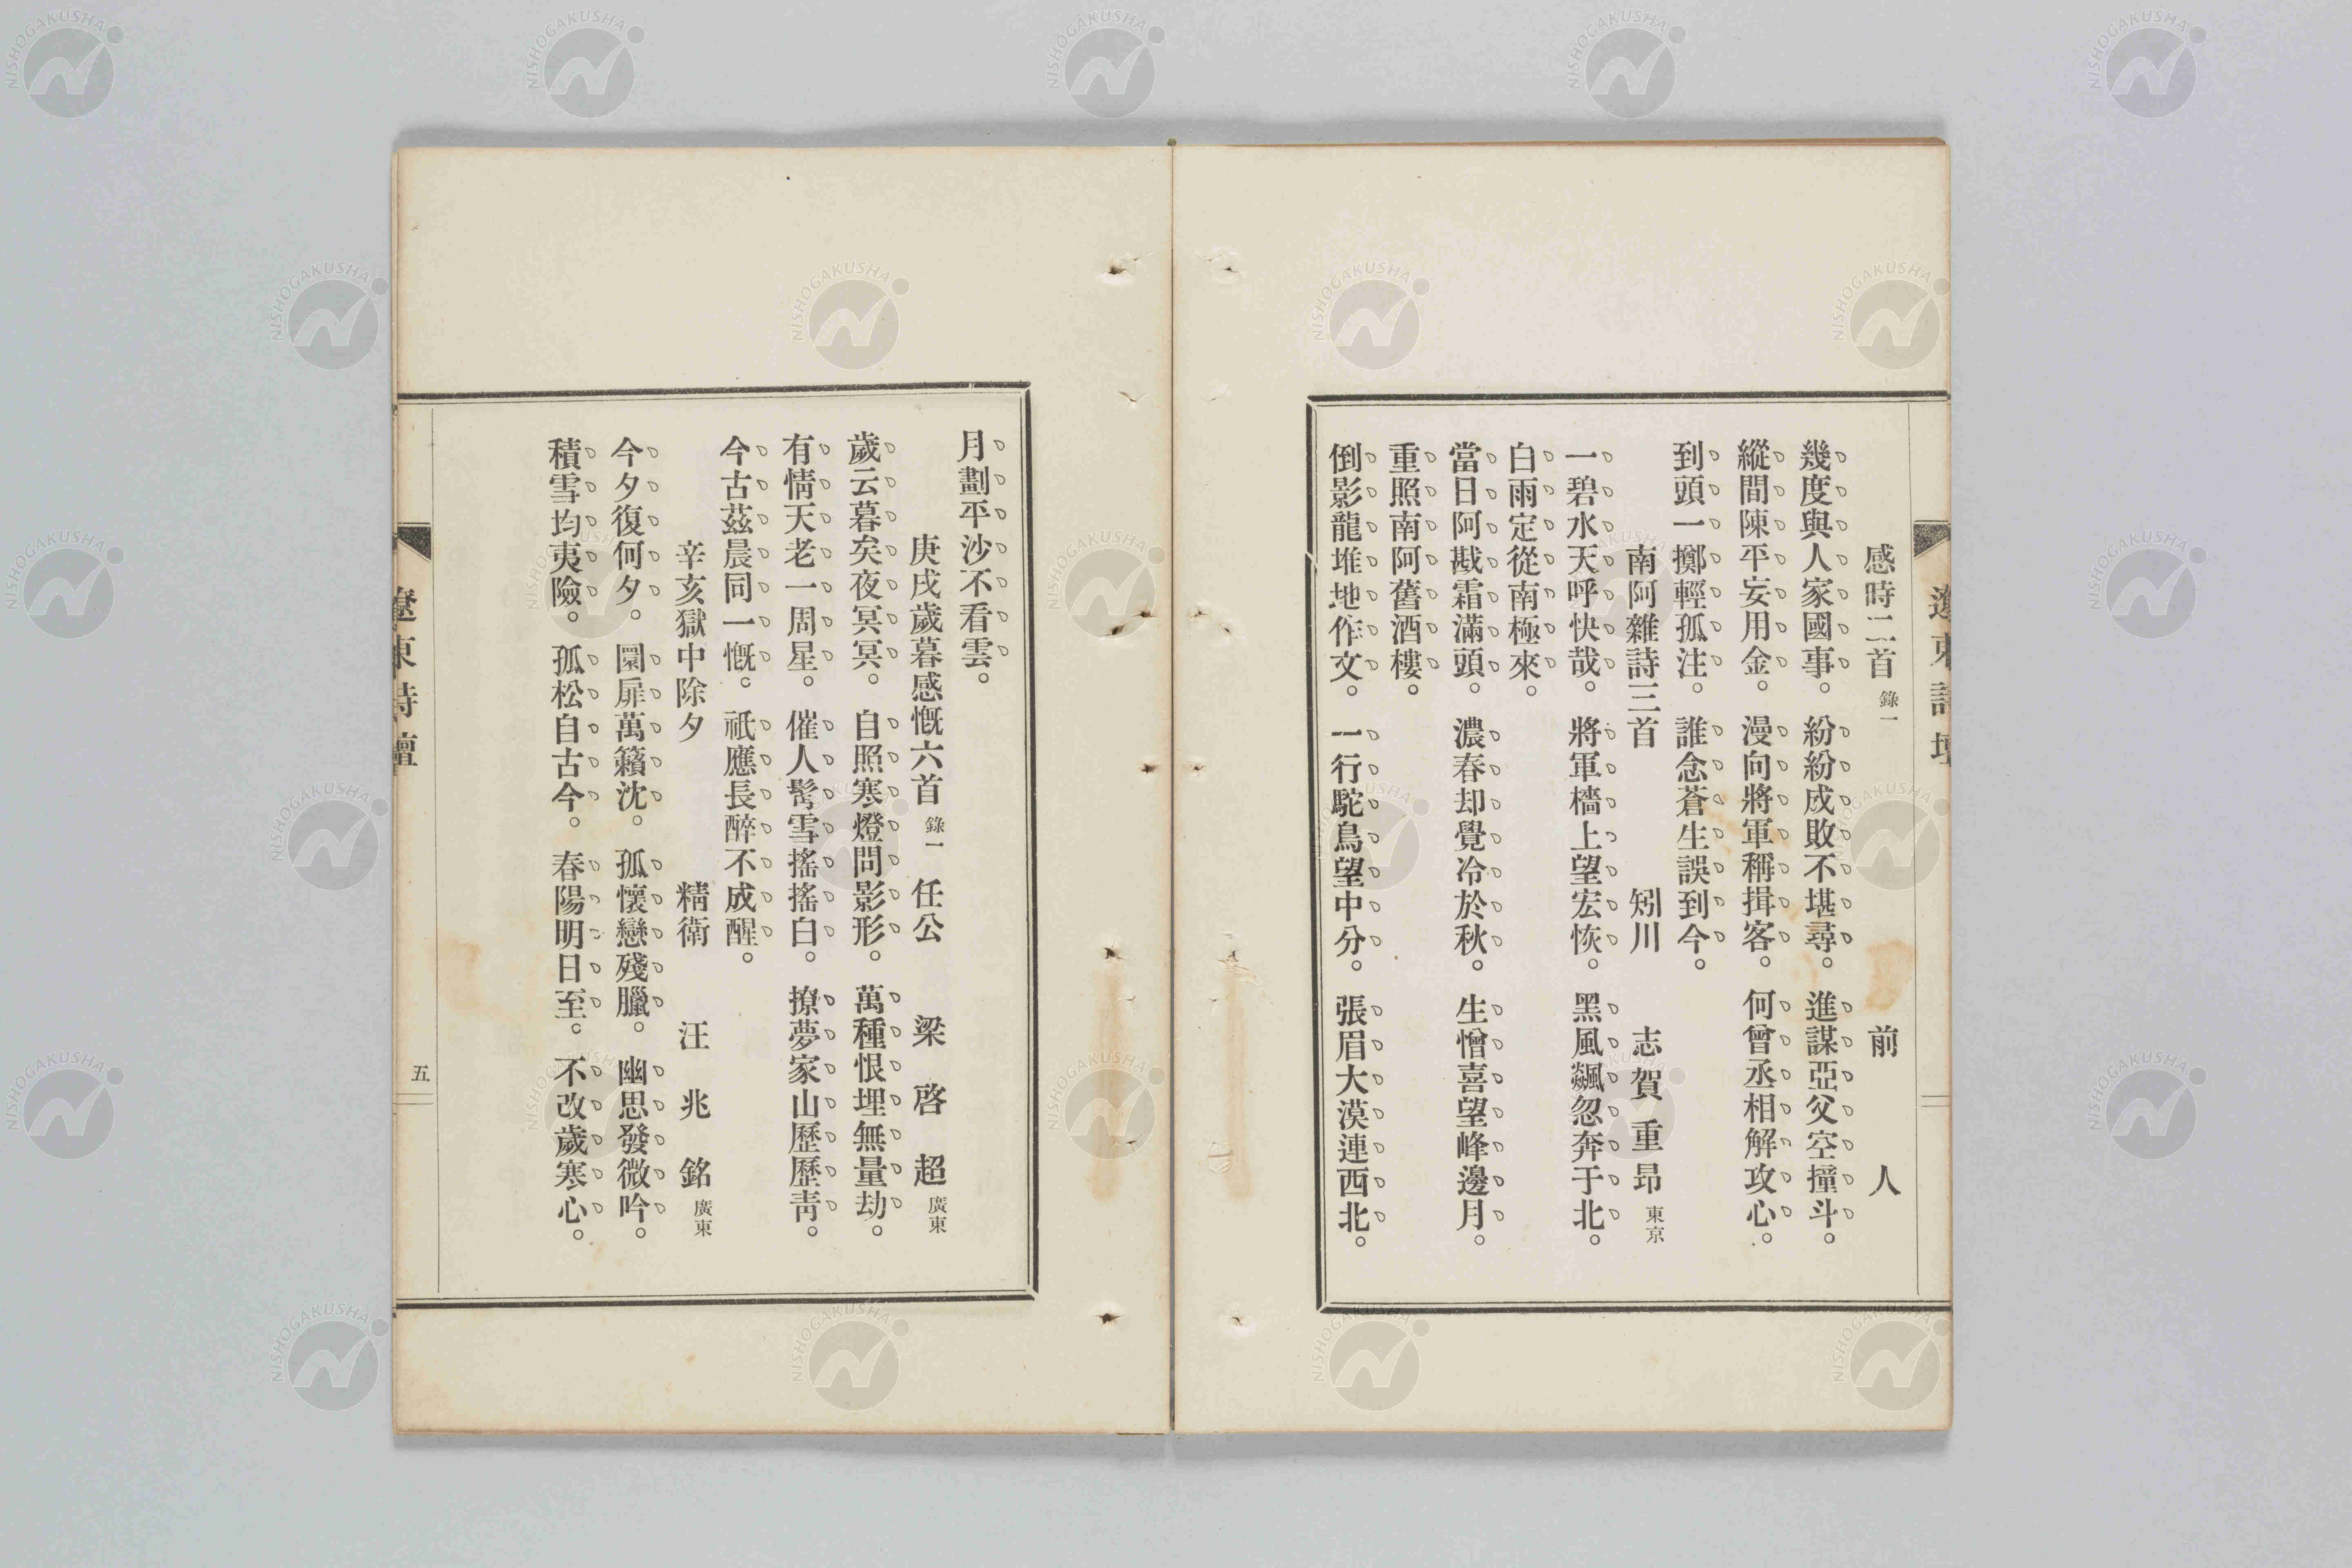 遼東詩壇
感時二首 錄一 前人
幾度與人家國事。紛紛成敗不堪尋。進謀亞父空撞斗。
縱間陳平妄用金。漫向將軍稱揖客。何曾丞相解攻心。
到頭一擲輕孤注。誰念蒼生誤到今。
南阿雜詩三首 矧川 志賀重昂 東京
一碧水天呼快哉。將軍檣上望宏恢。黑風飆忽奔于北。
白雨定從南極來。
當日阿戡霜滿頭。濃春却覺冷於秋。生憎喜望峰邊月。
重照南阿舊酒樓。
倒影龍堆地作文。一行駝鳥望中分。張眉大漠連西北。
月劃平沙不看雲。
庚戌歲暮感慨六首 錄一 任公 梁啓超 廣東
歲云暮矣夜冥冥。自照寒燈問影形。萬種恨埋無量劫。
有情天老一周星。催人髩雪搖搖白。撩夢家山歷歷靑。
今古茲晨同一慨。祇應長醉不成醒。
辛亥獄中除夕 精衛 汪兆銘 廣東
今夕復何夕。圜扉萬籟沈。孤懷戀殘臘。幽思發微吟。
積雪均夷險。孤松自古今。春陽明日至。不改歲寒心。
遼東詩壇
五
NISHOGAKUSHA